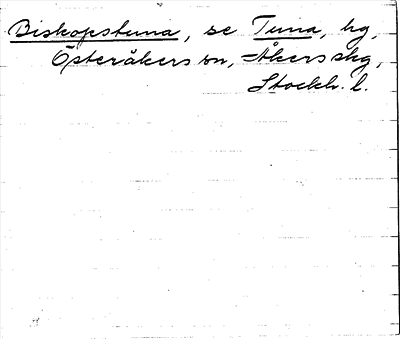 Biskopstuna, se Tuna, hg,
Österåkers sn, Åkers skg,
Stockh. l.